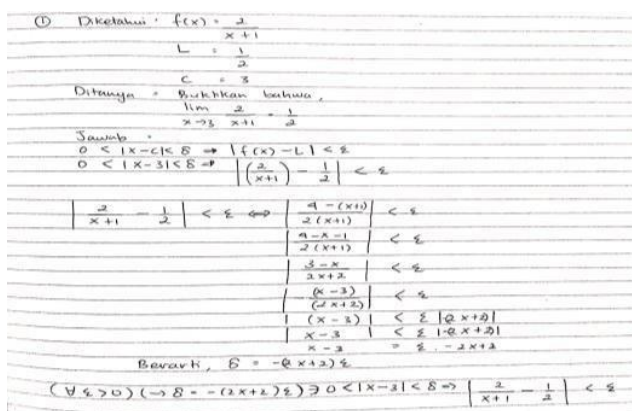 ① Diketahui : f(x) = 2 / x+1
L = 1/2
c = 3
Ditanya : Buktikan bahwa,
lim x→3 2/x+1 = 1/2
Jawab :
0 < |x-c| < δ → |f(x) - L| < ε
0 < |x-3| < δ → |(2/x+1) - 1/2| < ε
|2/x+1 - 1/2| < ε ⇔ |4-(x+1) / 2(x+1)| < ε
|4-x-1 / 2(x+1)| < ε
|3-x / 2x+2| < ε
|-(x-3) / (2x+2)| < ε
|(x-3)| < ε |-(2x+2)|
|x-3| < ε |-(2x+2)|
x-3 = ε . -2x+2
Berarti, δ = -(2x+2)ε
(∀ε>0)(→δ = -(2x+2)ε) ∋ 0<|x-3|<δ → |2/x+1 - 1/2| < ε